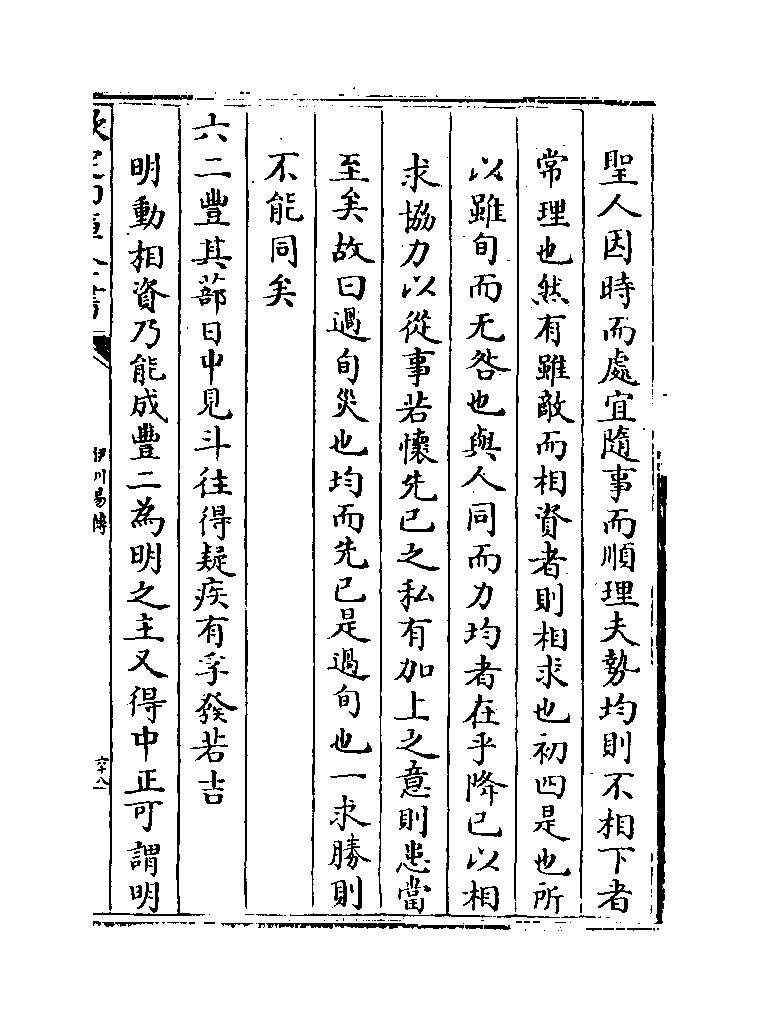 聖人因時而處宜隨事而順理夫勢均則不相下者
常理也然有雖敵而相資者則相求也初四是也所
以雖旬而无咎也與人同而力均者在乎降己以相
求協力以從事若懷先己之私有加上之意則患當
至矣故曰過旬災也均而先己是過旬也一求勝則
不能同矣
六二豐其蔀日中見斗往得疑疾有孚發若吉
明動相資乃能成豐二為明之主又得中正可謂明
伊川易傳
六十八